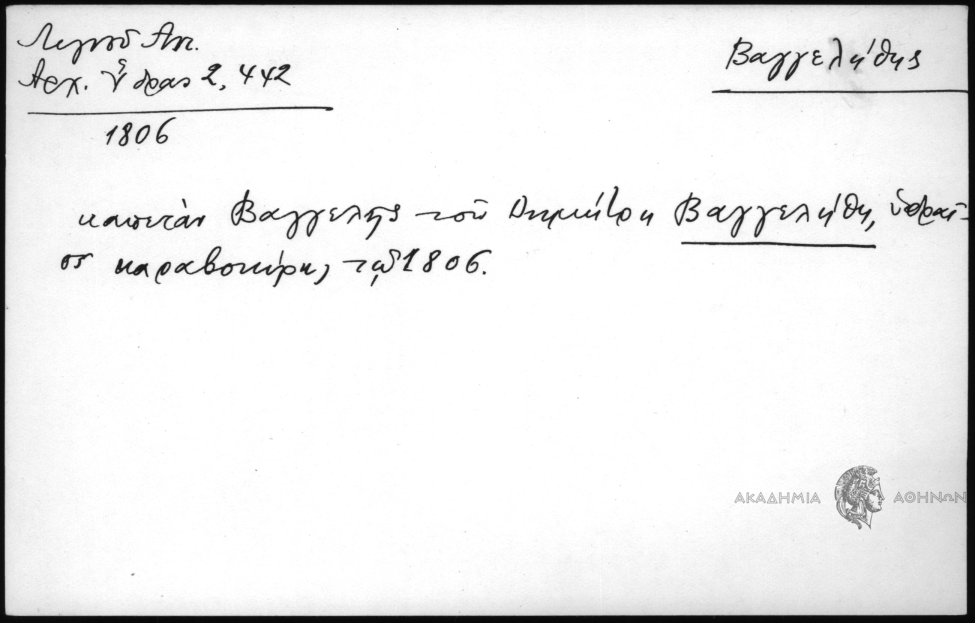 Λιγνοῦ Αντ.
Αρχ. Ὕδρας 2, 442
1806
Βαγγελήθης
καπετὰν Βαγγελης τοῦ Δημήτρη Βαγγελήθη, ὑδραῖ-
ος καραβοκύρης, τῷ 1806.
ΑΚΑΔΗΜΙΑ ΑΘΗΝΩΝ